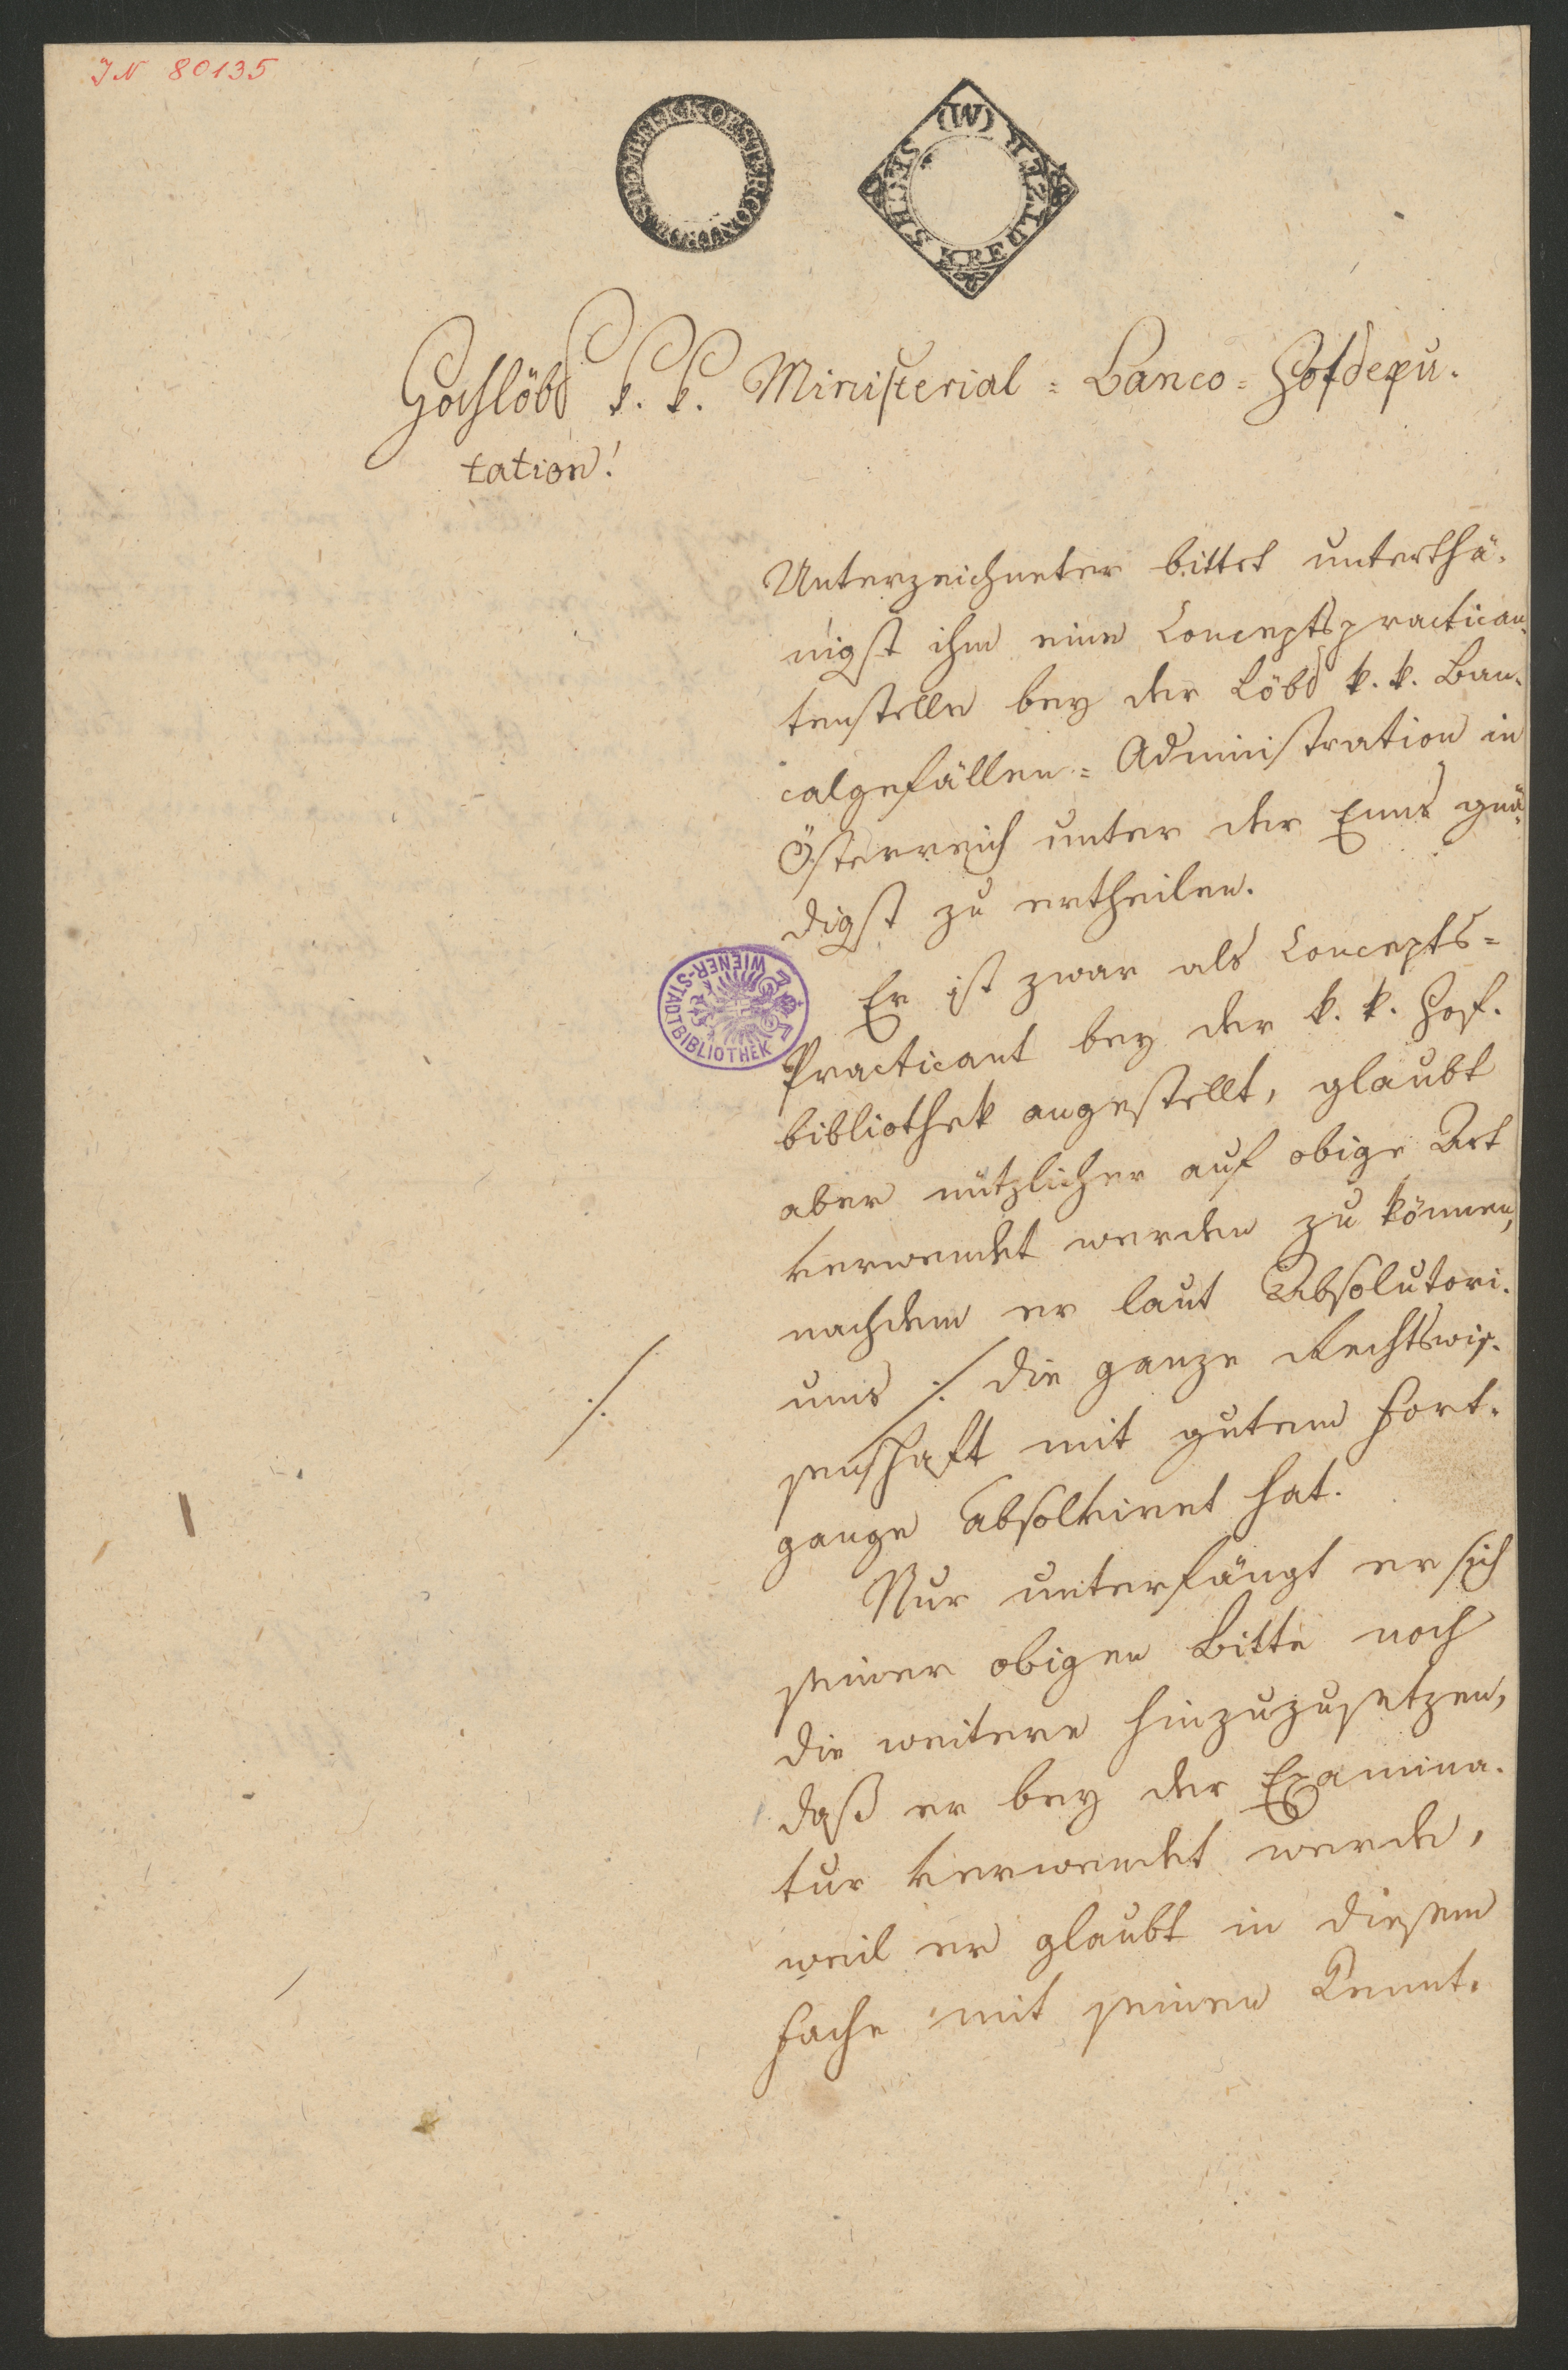 IN 80135
(W) SECHS KREUTZER
Hochlöbl k. k. Ministerial = Banco = Hofdepu-
tation!
Unterzeichneter bittet unterthä-
nigst ihm eine Conceptspractican-
tenstelle bey der Löbl k. k. Ban-
calgefällen = Administration in
Österreich unter der Enns gnä-
digst zu ertheilen.
Er ist zwar als Concepts=
WIENER-STADTBIBLIOTHEK
Practicant bey der k. k. Hof-
bibliothek angestellt, glaubt
aber nützlicher auf obige Art
verwendet werden zu können,
nachdem er laut Absolutori-
ums ·/. die ganze Rechtswis-
·/.
senschaft mit gutem Fort-
gange absolviret hat.
Nur unterfängt er sich
seiner obigen Bitte noch
die weitere hinzuzusetzen,
daß er bey der Examina-
tur verwendet werde,
weil er glaubt in diesem
Fache mit seinen Kennt-